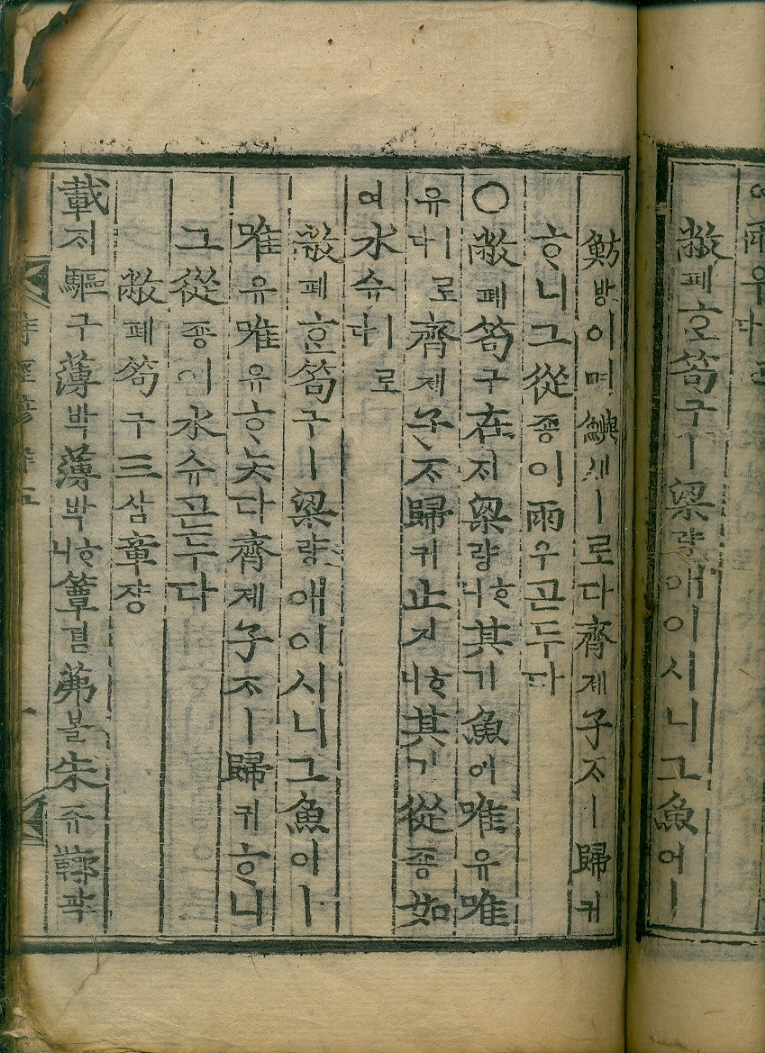 여雨우ㅣ로다
敝폐ᄒᆞᆫ笱구ㅣ梁량애이시니그魚어ㅣ
魴방이며鱮셔ㅣ로다齊졔子ᄌᆞㅣ歸귀
ᄒᆞ니그從죵이雨우ᄀᆞᆮ두다
○敝폐笱구在ᄌᆡ梁량ᄒᆞ니其기魚어唯유唯
유ㅣ로다齊졔子ᄌᆞ歸귀止지ᄒᆞ니其기從죵如
여水슈ㅣ로다
敝폐ᄒᆞᆫ笱구ㅣ梁량애이시니그魚어ㅣ
唯유唯유ᄒᆞ놋다齊졔子ᄌᆞㅣ歸귀ᄒᆞ니
그從죵이水슈ᄀᆞᆮ두다
敝폐笱구三삼章쟝
載ᄌᆡ驅구薄박薄박ᄒᆞ니簟뎜茀블朱쥬鞹곽
詩經諺解五